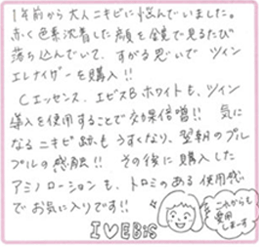 1年前から大人ニキビに悩んでいました。
赤く色素沈着した顔を鏡で見るたび
落ち込んでいて、すがる思いでツイン
エレナイザーを購入!!
Cエッセンス、エビスBホワイトも、ツイン
導入を使用することで効果倍増!! 気に
なるニキビ跡もうすくなり、翌朝のプル
プルの感触!! その後に購入した
アミノローションも、トロミのある使用感
でお気に入りです!!
これからも
愛用
しまーす
I♡EBiS